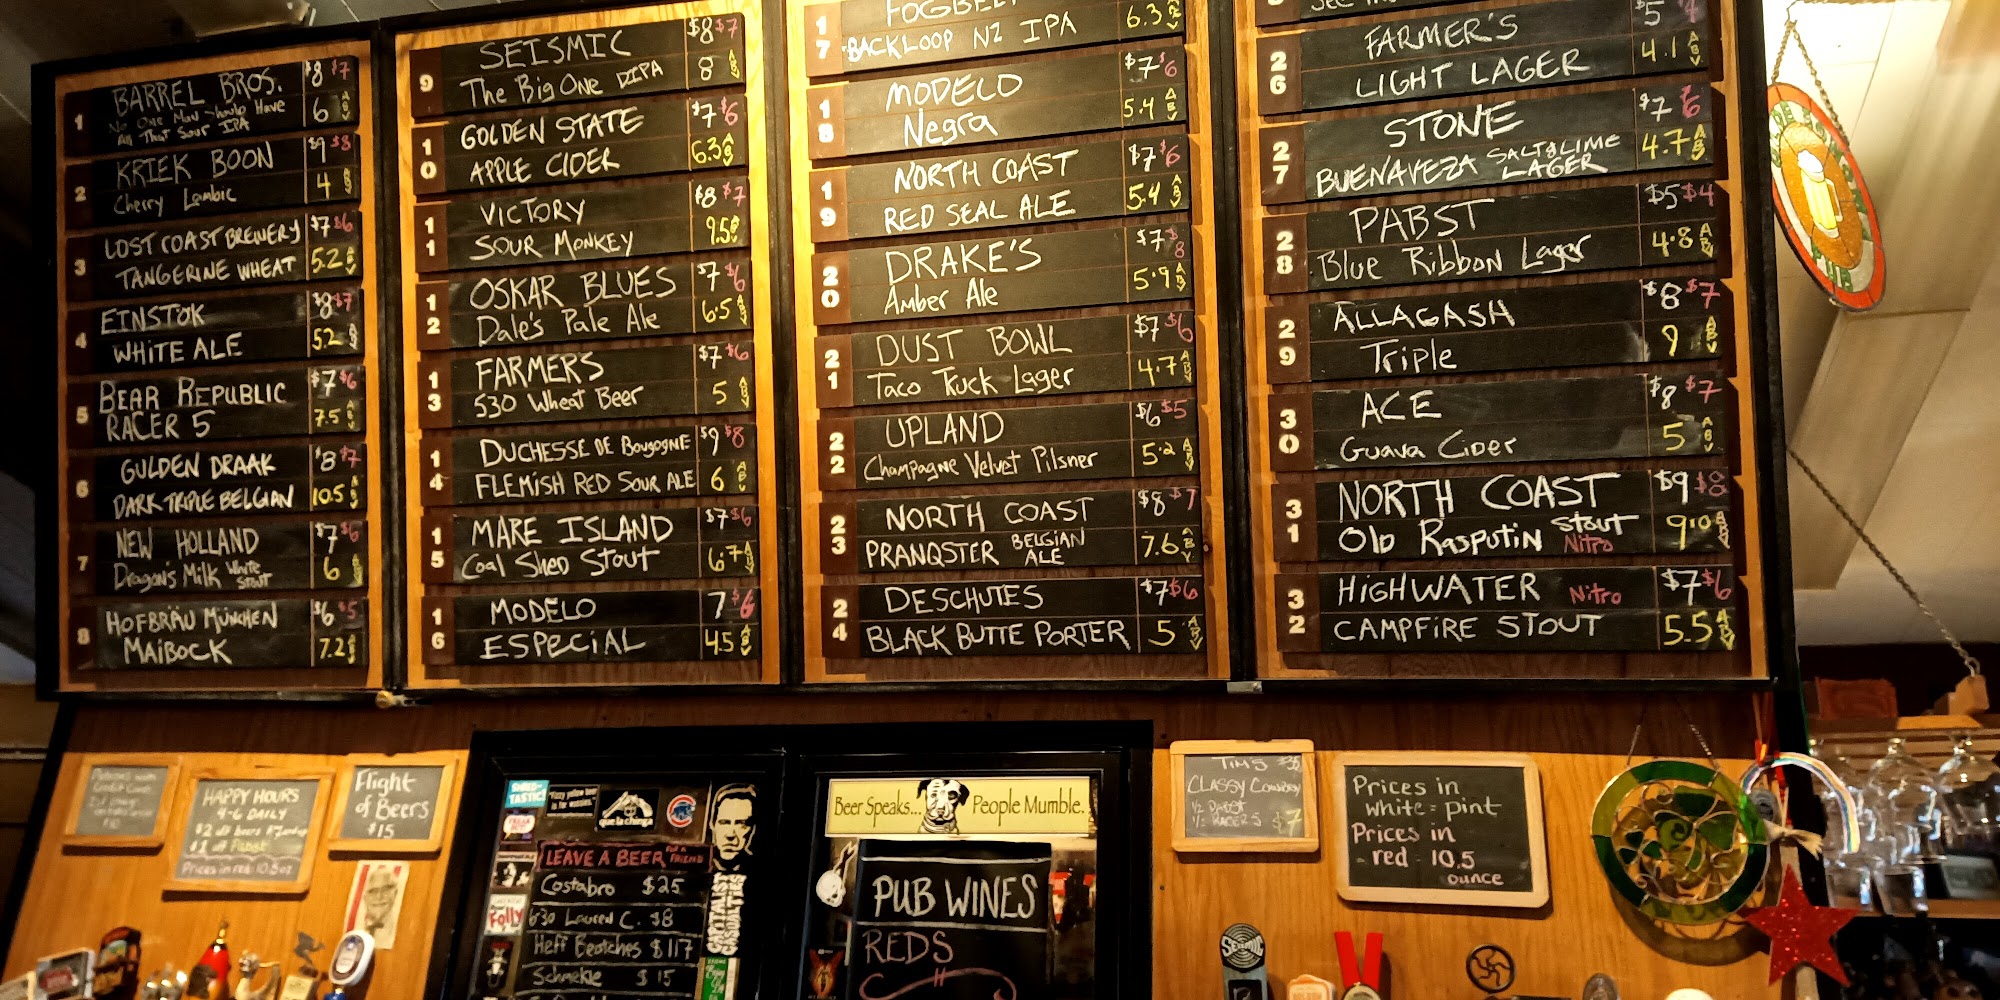 1 BARREL BROS. $8 $7
No One Man Should Have
All That Sour IPA 6 ABV
2 KRIEK BOON $9 $8
Cherry Lambic 4 ABV
3 LOST COAST BREWERY $7 $6
TANGERINE WHEAT 5.2 ABV
4 EINSTOK $8 $7
WHITE ALE 5.2 ABV
5 BEAR REPUBLIC $7 $6
RACER 5 7.5 ABV
6 GULDEN DRAAK $8 $7
DARK TRIPLE BELGIAN 10.5 ABV
7 NEW HOLLAND $7 $6
Dragon's Milk White Stout 6 ABV
8 HOFBRÄU MÜNCHEN $6 $5
MAIBOCK 7.2 ABV
9 SEISMIC $8 $7
The Big One DIPA 8 ABV
10 GOLDEN STATE $7 $6
APPLE CIDER 6.3 ABV
11 VICTORY $8 $7
SOUR MONKEY 9.5 ABV
12 OSKAR BLUES $7 $6
Dale's Pale Ale 6.5 ABV
13 FARMERS $7 $6
530 Wheat Beer 5 ABV
14 DUCHESSE DE Bourgogne $9 $8
FLEMISH RED SOUR ALE 6 ABV
15 MARE ISLAND $7 $6
Coal Shed Stout 6.7 ABV
16 MODELO 7 $6
ESPECIAL 4.5 ABV
17 FOGBELT
BACKLOOP NZ IPA 6.3 ABV
18 MODELO $7 $6
Negra 5.4 ABV
19 NORTH COAST $7 $6
RED SEAL ALE 5.4 ABV
20 DRAKE'S $7 $8
Amber Ale 5.9 ABV
21 DUST BOWL $7 $6
Taco Truck Lager 4.7 ABV
22 UPLAND $6 $5
Champagne Velvet Pilsner 5.2 ABV
23 NORTH COAST $8 $7
PRANQSTER BELGIAN ALE 7.6 ABV
24 DESCHUTES $7 $6
BLACK BUTTE PORTER 5 ABV
26 FARMER'S $5 4
LIGHT LAGER 4.1 ABV
27 STONE $7 6
BUENAVEZA SALT & LIME LAGER 4.7 ABV
28 PABST $5 $4
Blue Ribbon Lager 4.8 ABV
29 ALLAGASH $8 $7
Triple 9 ABV
30 ACE $8 $7
Guava Cider 5 ABV
31 NORTH COAST $9 $8
Old Rasputin Stout Nitro 9.0 ABV
32 HIGHWATER Nitro $7 $6
CAMPFIRE STOUT 5.5 ABV
HAPPY HOURS
4-6 DAILY
$2 off beers
$1 off Pabst
Prices in red 10.5 oz
Flight
of Beers
$15
SHRED-
TASTIC!
que la chinga
Folly
CAPITALIST
CASUALTIES
LEAVE A BEER FOR A FRIEND
Costabro $25
6:30 Lauren C. $8
Heff Beotches $117
Schmekle $15
Beer Speaks... People Mumble.
PUB WINES
REDS
TIM'S
CLASSY COWBOY
1/2 PABST
1/2 RACER 5 $7
Prices in
white = pint
Prices in
- red = 10.5
ounce
SEISMIC